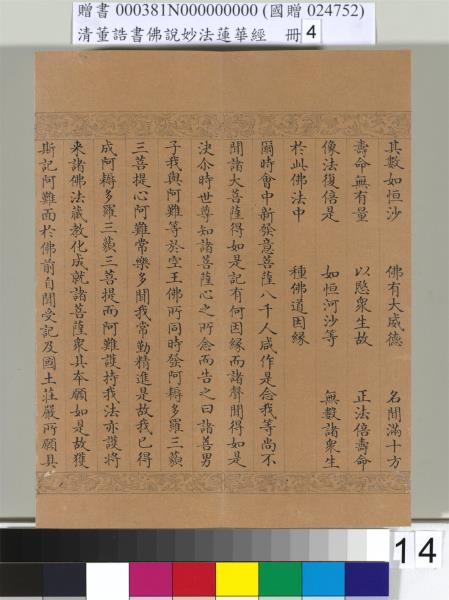 贈書 000381N000000000 (國贈 024752)
清董誥書佛說妙法蓮華經 冊 4
其數如恒沙 佛有大威德 名聞滿十方
壽命無有量 以愍衆生故 正法倍壽命
像法復倍是 如恒河沙等 無數諸衆生
於此佛法中 種佛道因緣
爾時會中新發意菩薩八千人咸作是念我等尚不
聞諸大菩薩得如是記有何因緣而諸聲聞得如是
決尒時世尊知諸菩薩心之所念而告之曰諸善男
子我與阿難等於空王佛所同時發阿耨多羅三藐
三菩提心阿難常樂多聞我常勤精進是故我已得
成阿耨多羅三藐三菩提而阿難護持我法亦護將
来諸佛法藏教化成就諸菩薩衆其本願如是故獲
斯記阿難面於佛前自聞受記及國土莊嚴所願具
14